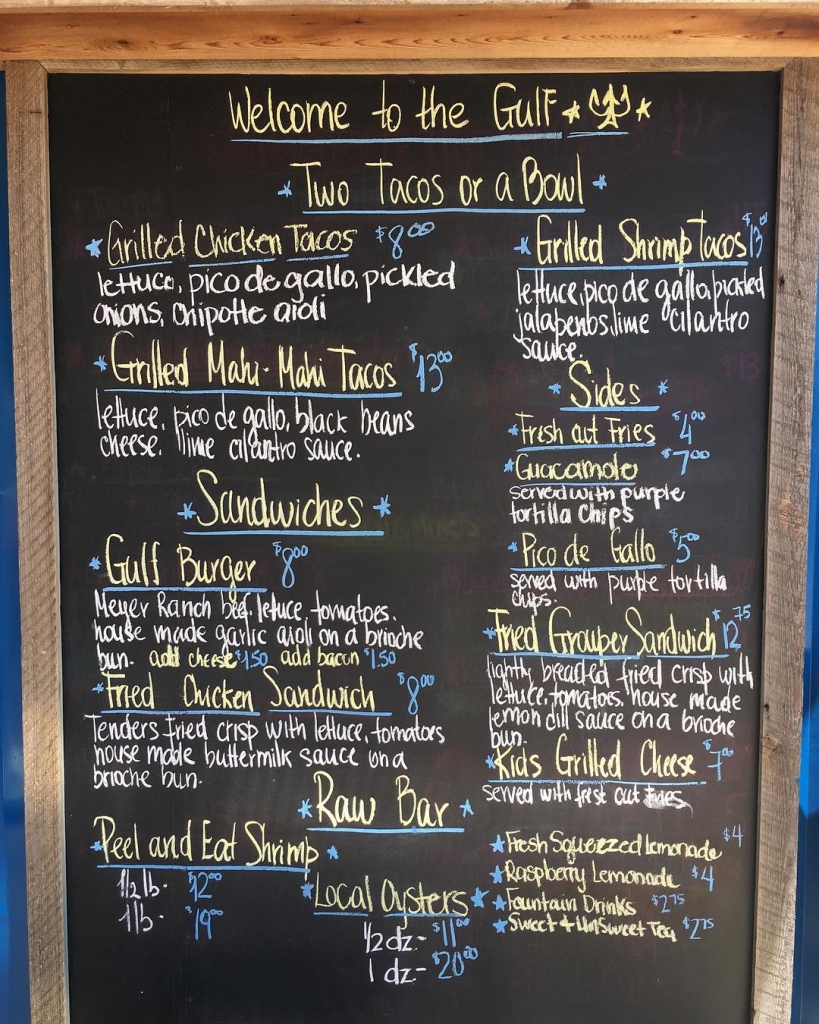 Welcome to the Gulf
Two Tacos or a Bowl
Grilled Chicken Tacos $8.00
lettuce, pico de gallo, pickled
onions, chipotle aioli
Grilled Mahi-Mahi Tacos $13.00
lettuce, pico de gallo, black beans
cheese, lime cilantro sauce.
Sandwiches
Gulf Burger $8.00
Meyer Ranch beef, lettuce, tomatoes,
house made garlic aioli on a brioche
bun. add cheese $1.50 add bacon $1.50
Fried Chicken Sandwich $8.00
Tenders fried crisp with lettuce, tomatoes
house made buttermilk sauce on a
brioche bun.
Grilled Shrimp Tacos $13.00
lettuce, pico de gallo, pickled
jalapenos, lime cilantro
sauce.
Sides
Fresh cut Fries $4.00
Guacamole $7.00
served with purple
tortilla chips
Pico de Gallo $5.00
served with purple tortilla
chips.
Fried Grouper Sandwich $12.75
lightly breaded fried crisp with
lettuce, tomatoes, house made
lemon dill sauce on a brioche
bun.
Kids Grilled Cheese $7.00
served with fresh cut fries
Raw Bar
Peel and Eat Shrimp
1/2 lb. $12.00
1 lb. $19.00
Local Oysters
1/2 dz - $11.00
1 dz - $20.00
Fresh Squeezed Lemonade $4
Raspberry Lemonade $4
Fountain Drinks $2.75
Sweet + UnSweet Tea $2.75